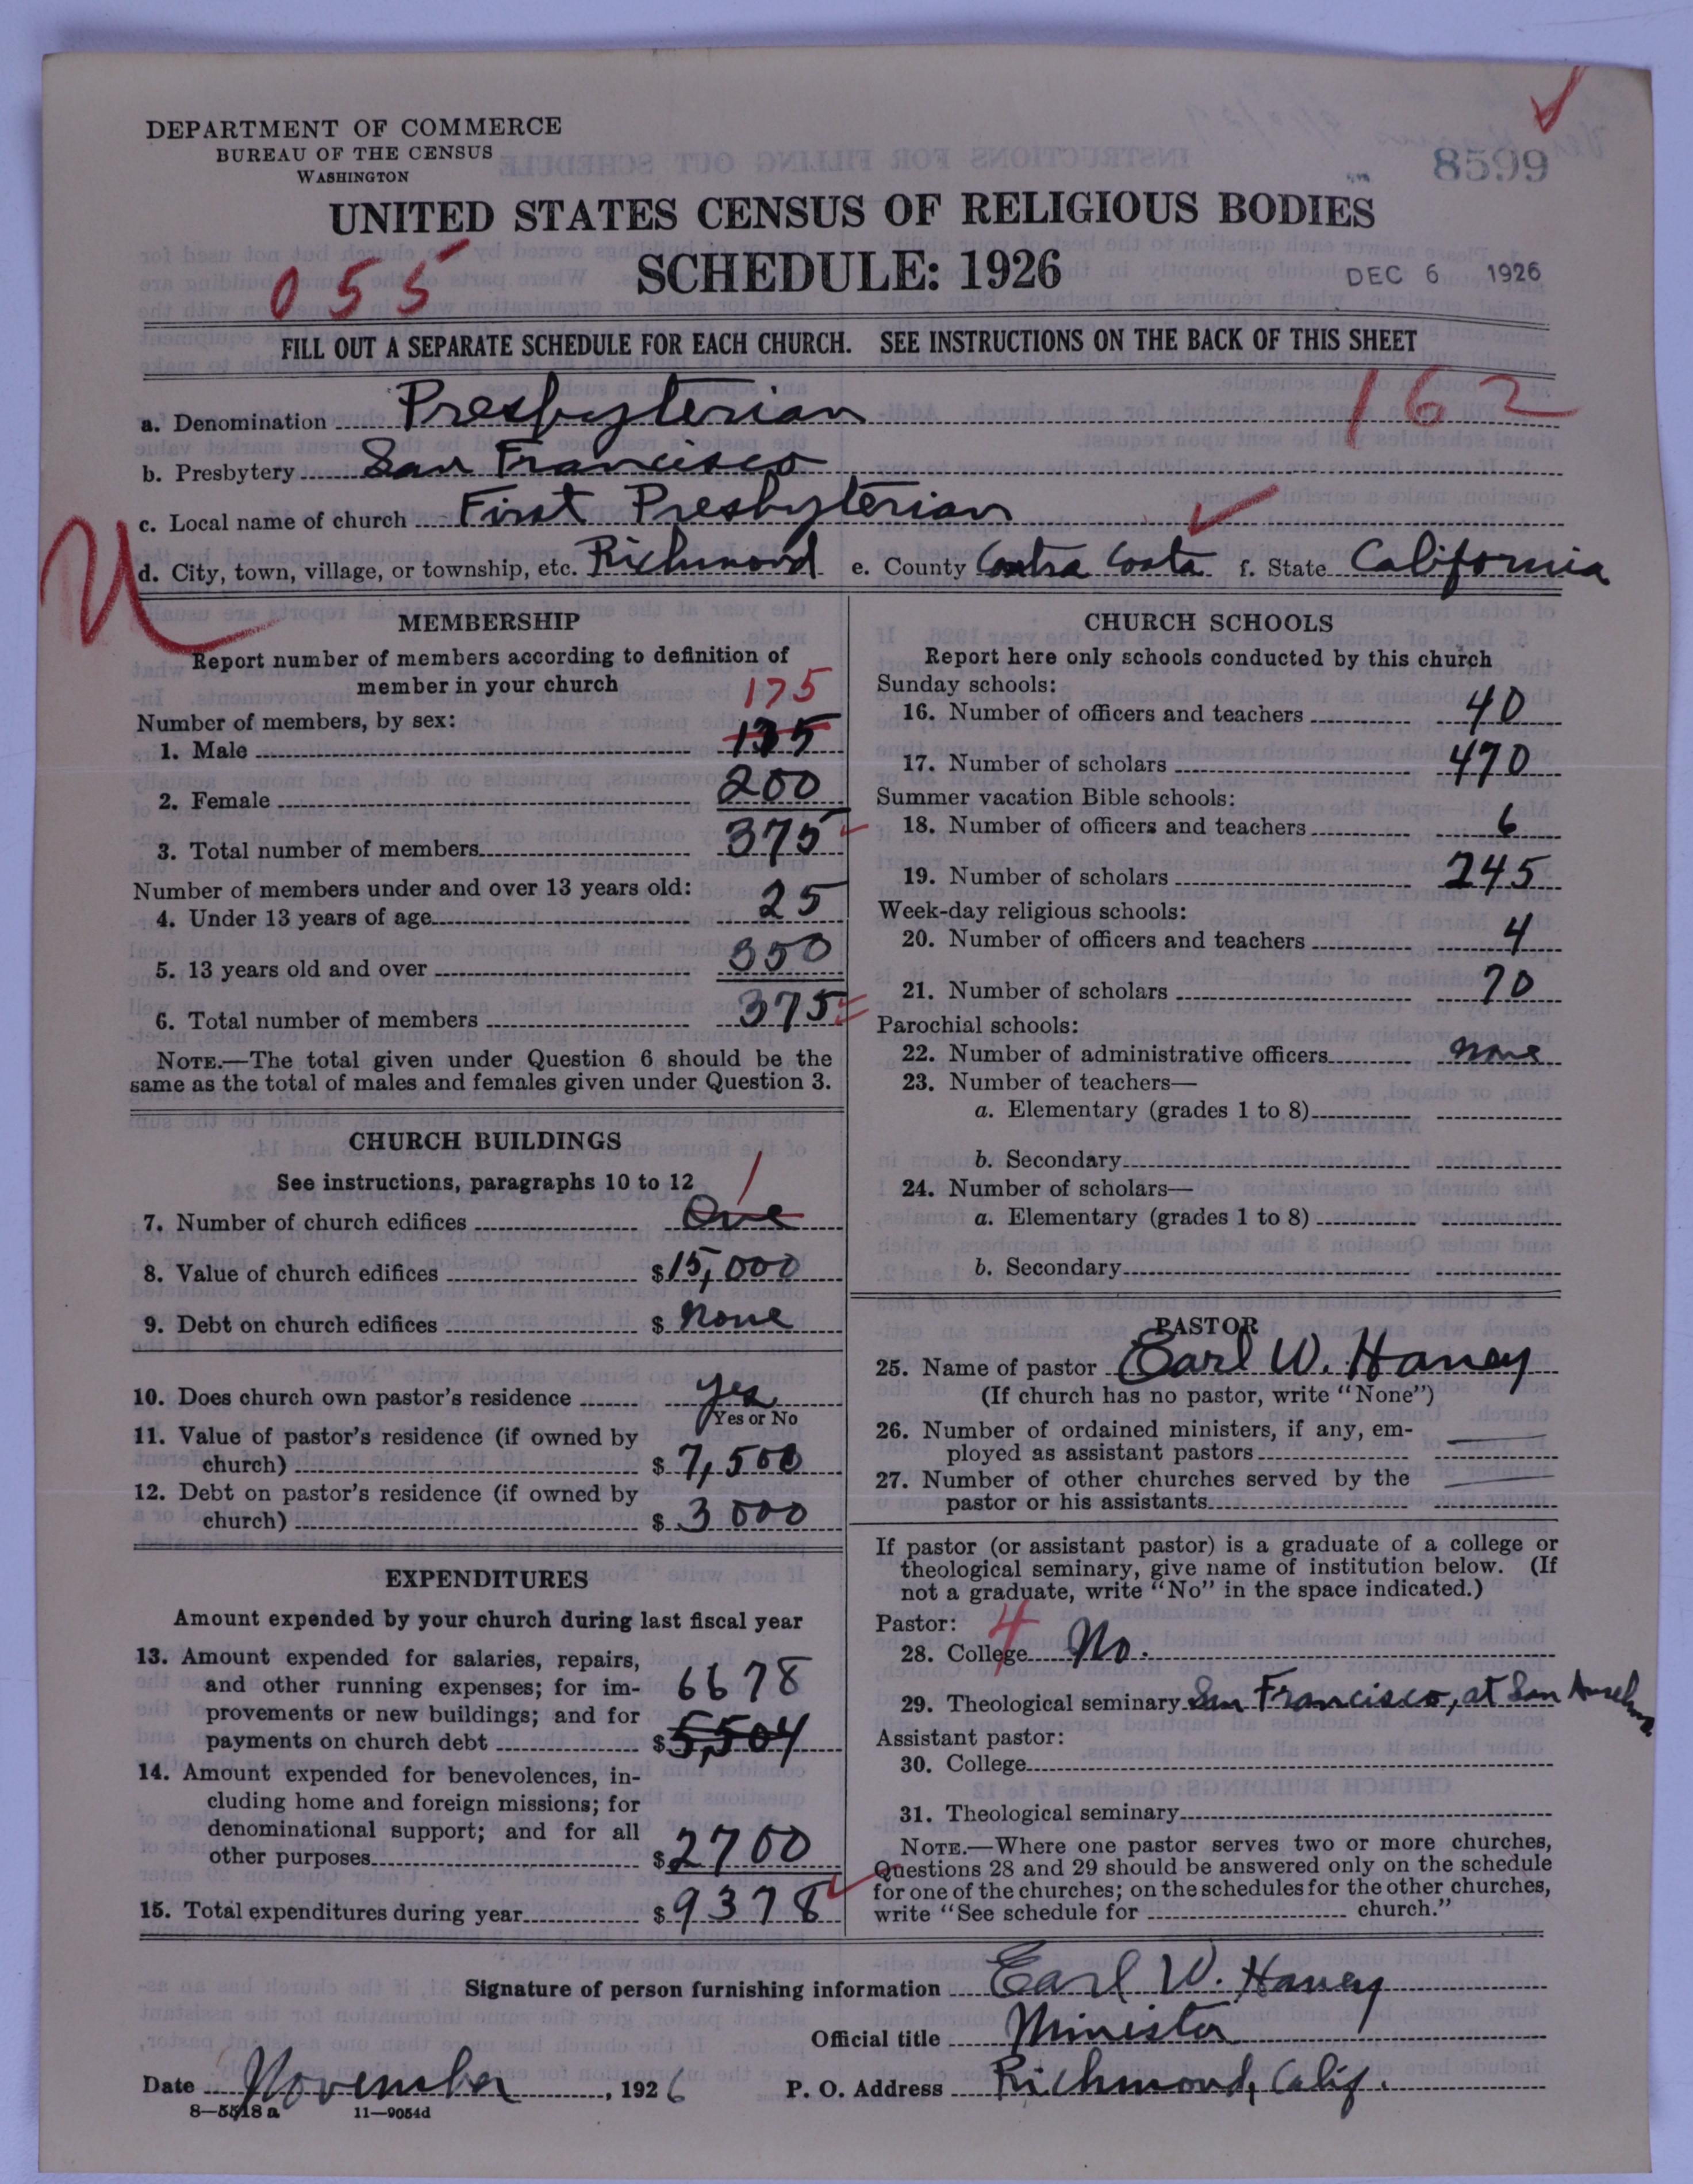 DEPARTMENT OF COMMERCE
BUREAU OF THE CENSUS
WASHINGTON
8599
UNITED STATES CENSUS OF RELIGIOUS BODIES
SCHEDULE: 1926
055
DEC 6 1926
FILL OUT A SEPARATE SCHEDULE FOR EACH CHURCH. SEE INSTRUCTIONS ON THE BACK OF THIS SHEET
162
a. Denomination Presbyterian
b. Presbytery San Francisco
c. Local name of church First Presbyterian
d. City, town, village, or township, etc. Richmond e. County Contra Costa f. State California
MEMBERSHIP
Report number of members according to definition of
member in your church
175
Number of members, by sex:
1. Male 135
2. Female 200
3. Total number of members 375
Number of members under and over 13 years old:
4. Under 13 years of age 25
5. 13 years old and over 350
6. Total number of members 375
NOTE.—The total given under Question 6 should be the
same as the total of males and females given under Question 3.
CHURCH BUILDINGS
See instructions, paragraphs 10 to 12
1
7. Number of church edifices One
8. Value of church edifices $15,000
9. Debt on church edifices $ none
10. Does church own pastor's residence yes
Yes or No
11. Value of pastor's residence (if owned by
church) $7,500
12. Debt on pastor's residence (if owned by
church) $3000
EXPENDITURES
Amount expended by your church during last fiscal year
13. Amount expended for salaries, repairs,
and other running expenses; for im- 6678
provements or new buildings; and for
payments on church debt $5,504
14. Amount expended for benevolences, in-
cluding home and foreign missions; for
denominational support; and for all
other purposes $2700
15. Total expenditures during year $9378
CHURCH SCHOOLS
Report here only schools conducted by this church
Sunday schools:
16. Number of officers and teachers 40
17. Number of scholars 470
Summer vacation Bible schools:
18. Number of officers and teachers 6
19. Number of scholars 245
Week-day religious schools:
20. Number of officers and teachers 4
21. Number of scholars 70
Parochial schools:
22. Number of administrative officers none
23. Number of teachers—
a. Elementary (grades 1 to 8)
b. Secondary
24. Number of scholars—
a. Elementary (grades 1 to 8)
b. Secondary
PASTOR
25. Name of pastor Earl W. Haney
(If church has no pastor, write "None")
26. Number of ordained ministers, if any, em-
ployed as assistant pastors
27. Number of other churches served by the
pastor or his assistants
If pastor (or assistant pastor) is a graduate of a college or
theological seminary, give name of institution below. (If
not a graduate, write "No" in the space indicated.)
Pastor: 4
28. College No.
29. Theological seminary San Francisco, at San Anselmo
Assistant pastor:
30. College
31. Theological seminary
NOTE.—Where one pastor serves two or more churches,
Questions 28 and 29 should be answered only on the schedule
for one of the churches; on the schedules for the other churches,
write "See schedule for church."
Signature of person furnishing information Earl W. Haney
Official title Minister
Date November, 1926 P. O. Address Richmond, Calif.
8—5518 a 11—9054d